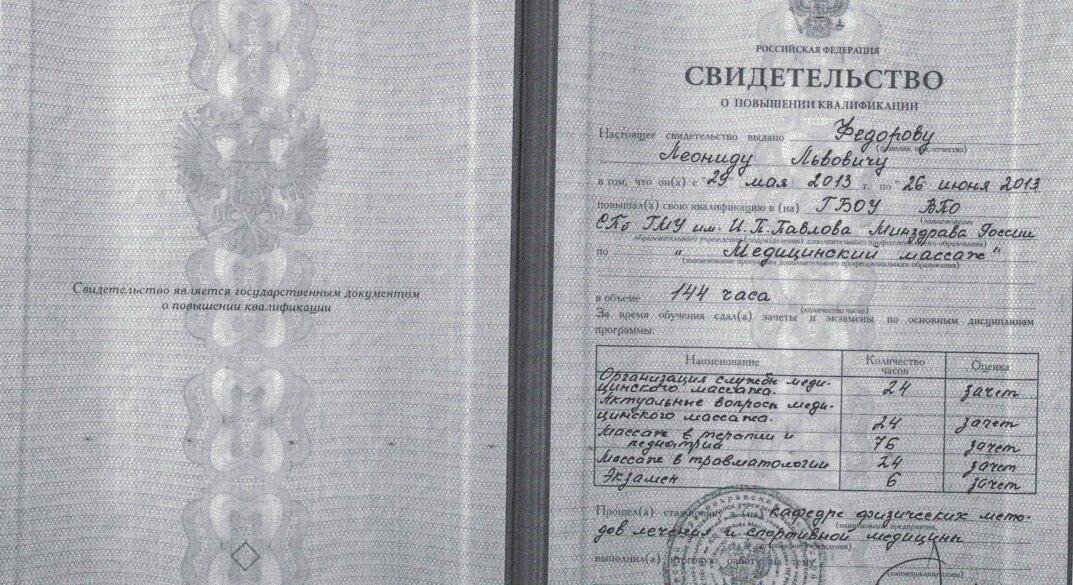 Свидетельство является государственным документом
о повышении квалификации
РОССИЙСКАЯ ФЕДЕРАЦИЯ
СВИДЕТЕЛЬСТВО
О ПОВЫШЕНИИ КВАЛИФИКАЦИИ
Настоящее свидетельство выдано Федорову
(фамилия, имя, отчество)
Леониду Львовичу
в том, что он(а) с "29" мая 2013 г. по "26 июня 2013
повышал(а) свою квалификацию в (на) ГБОУ ВПО
(наименование
СПб ГМУ им. И.П.Павлова Минздрава России
образовательного учреждения (подразделения) дополнительного профессионального образования)
по "Медицинский массаж"
(наименование программы дополнительного профессионального образования)
в объеме 144 часа
(количество часов)
За время обучения сдал(а) зачеты и экзамены по основным дисциплинам
программы:
Наименование Количество часов Оценка
Организация службы меди-
цинского массажа. 24 зачет
Актуальные вопросы меди-
цинского массажа. 24 зачет
Массаж в терапии и
педиатрии 76 зачет
Массаж в травматологии 24 зачет
Экзамен 6 зачет
Прошел(а) стажировку в (на) кафедре физических мето-
(наименование предприятия,
дов лечения и спортивной медицины
организации, учреждения)
выполнил(а) итоговую работу на тему
(наименование темы)